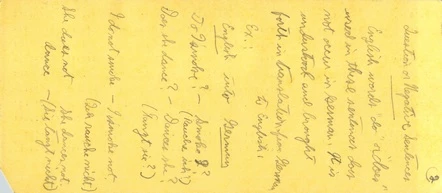 ③
Question or Negative Sentences
English words "do" & "does"
used in these sentences does
not occur in German. It is
understood and brought
forth in translation from German
to English:
Ex.:
English into German
Do I smoke? – Smoke I?
(Rauche ich?)
Does she dance? – Dances she?
(Tanzt sie?)
I do not smoke – I smoke not
(Ich rauche nicht)
She does not She dances not
dance – (Sie tanzt nicht)